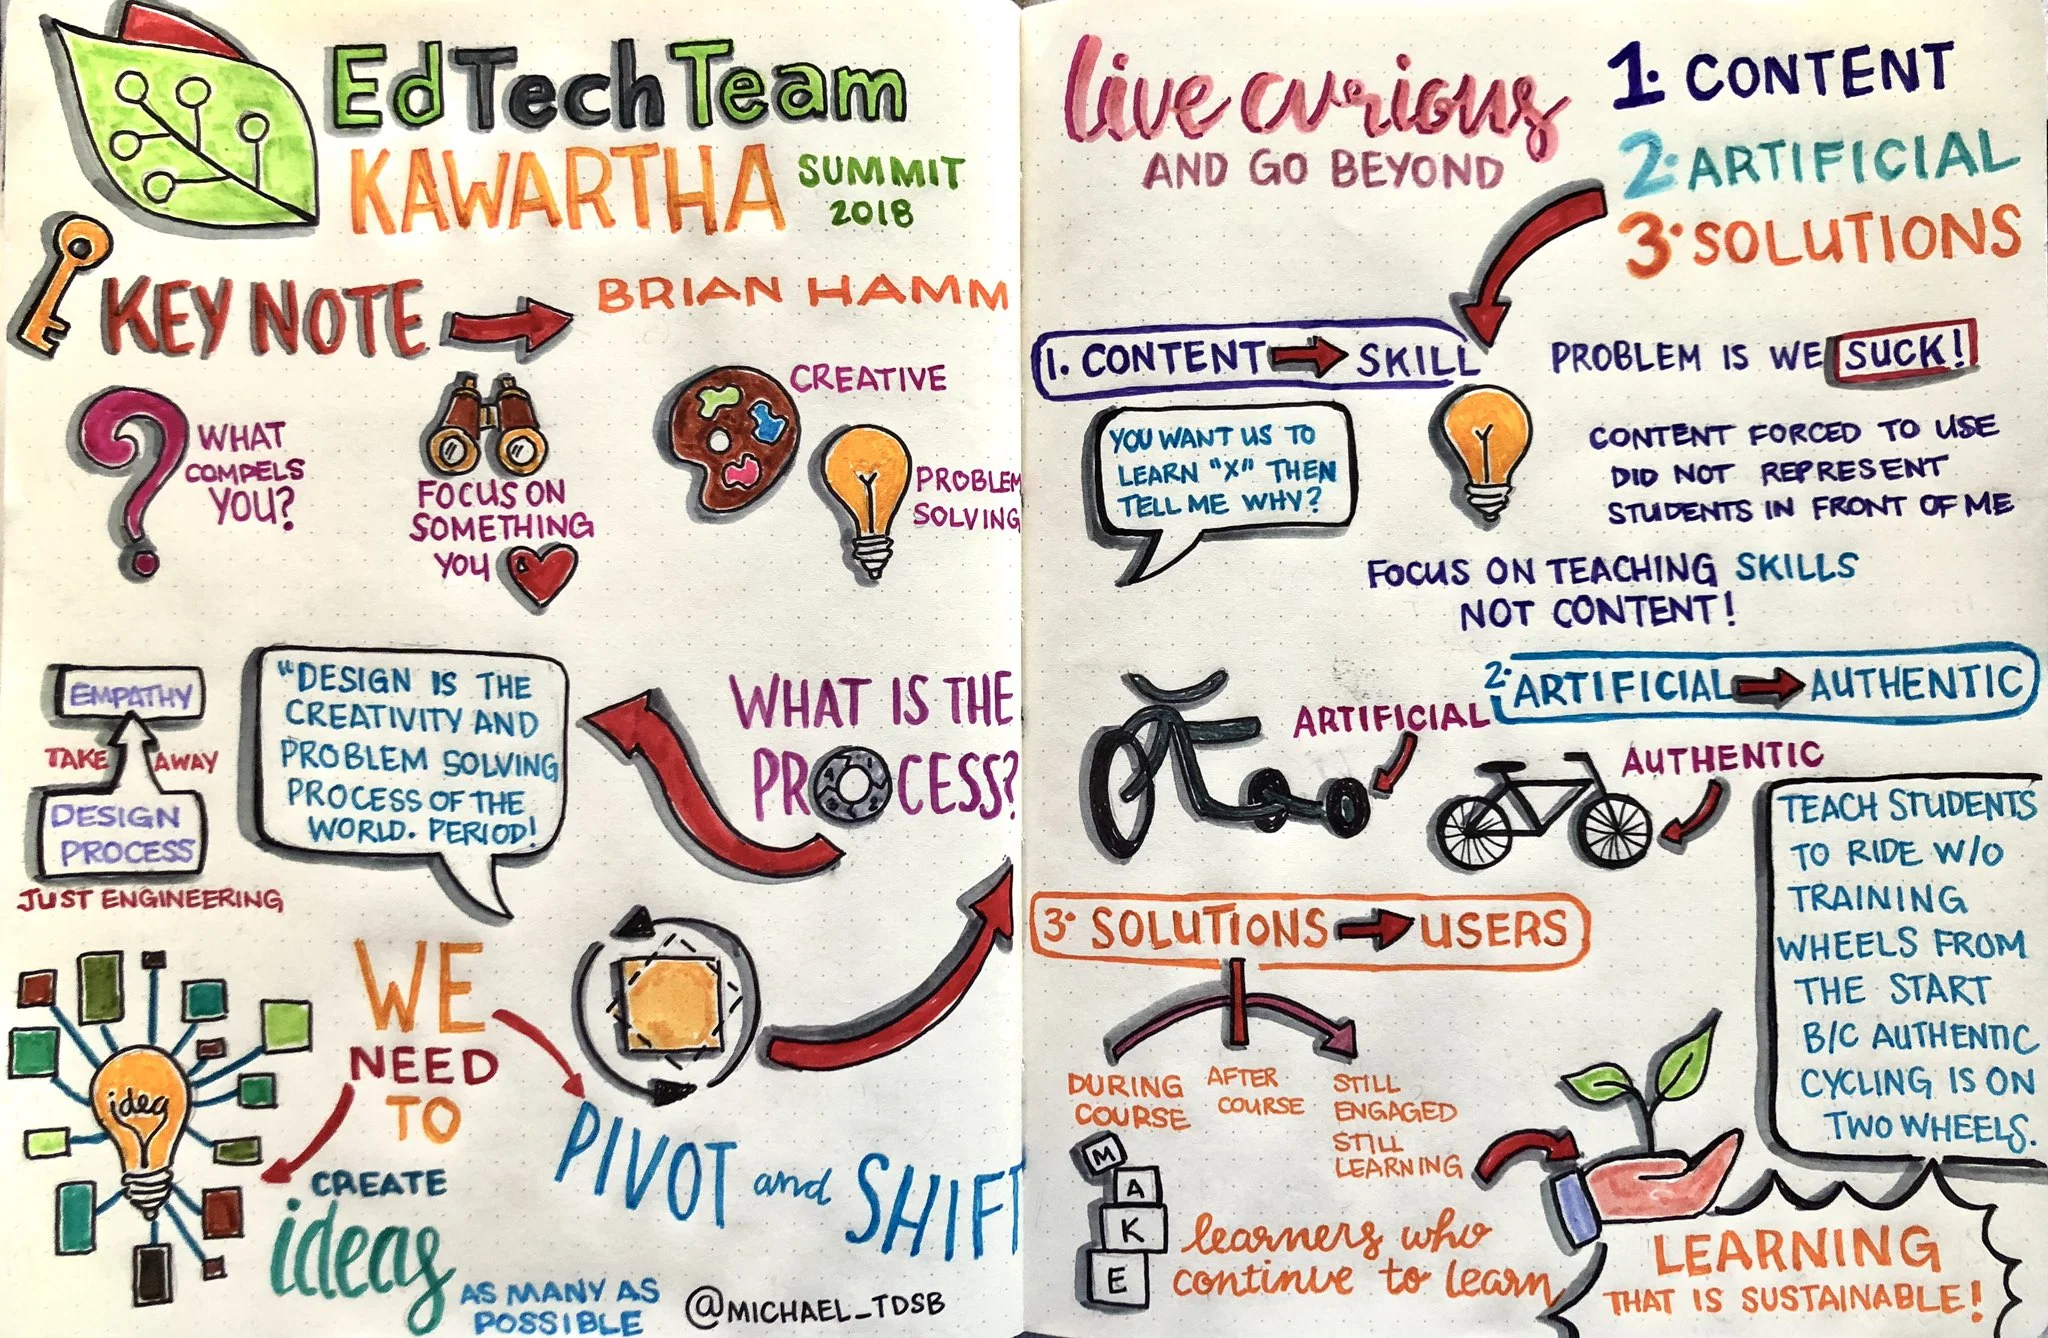 EdTechTeam
KAWARTHA
SUMMIT
2018
KEY NOTE
BRIAN HAMM
WHAT
COMPELS
YOU?
FOCUS ON
SOMETHING
YOU
CREATIVE
PROBLEM
SOLVING
EMPATHY
TAKE AWAY
DESIGN
PROCESS
JUST ENGINEERING
"DESIGN IS THE
CREATIVITY AND
PROBLEM SOLVING
PROCESS OF THE
WORLD. PERIOD!
WHAT IS THE
PROCESS?
idea
WE
NEED
TO
CREATE
ideas
AS MANY AS
POSSIBLE
PIVOT and SHIFT
@MICHAEL_TDSB
live curious
AND GO BEYOND
1. CONTENT
2. ARTIFICIAL
3. SOLUTIONS
1. CONTENT SKILL
PROBLEM IS WE SUCK!
YOU WANT US TO
LEARN "X" THEN
TELL ME WHY?
CONTENT FORCED TO USE
DID NOT REPRESENT
STUDENTS IN FRONT OF ME
FOCUS ON TEACHING SKILLS
NOT CONTENT!
2. ARTIFICIAL AUTHENTIC
ARTIFICIAL
AUTHENTIC
TEACH STUDENTS
TO RIDE W/O
TRAINING
WHEELS FROM
THE START
B/C AUTHENTIC
CYCLING IS ON
TWO WHEELS.
3. SOLUTIONS USERS
DURING
COURSE
AFTER
COURSE
STILL
ENGAGED
STILL
LEARNING
M
A
K
E
learners who
continue to learn
LEARNING
THAT IS SUSTAINABLE!